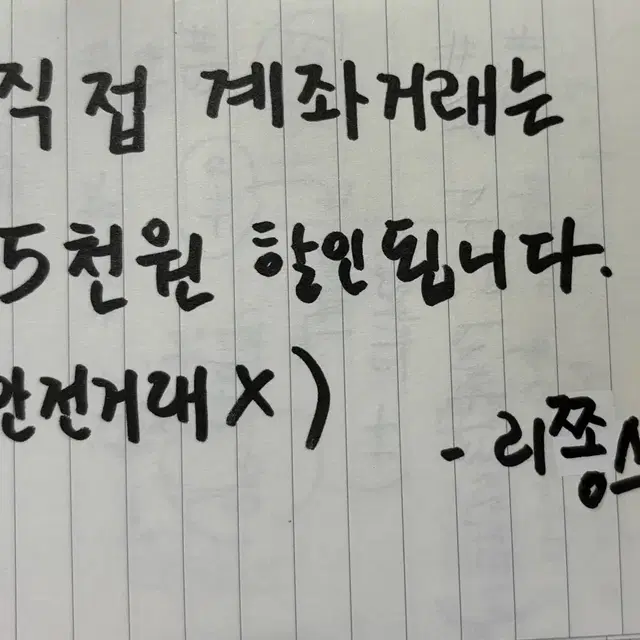 직접 계좌거래는
5천원 할인됩니다.
안전거래 X)
- 리쫑